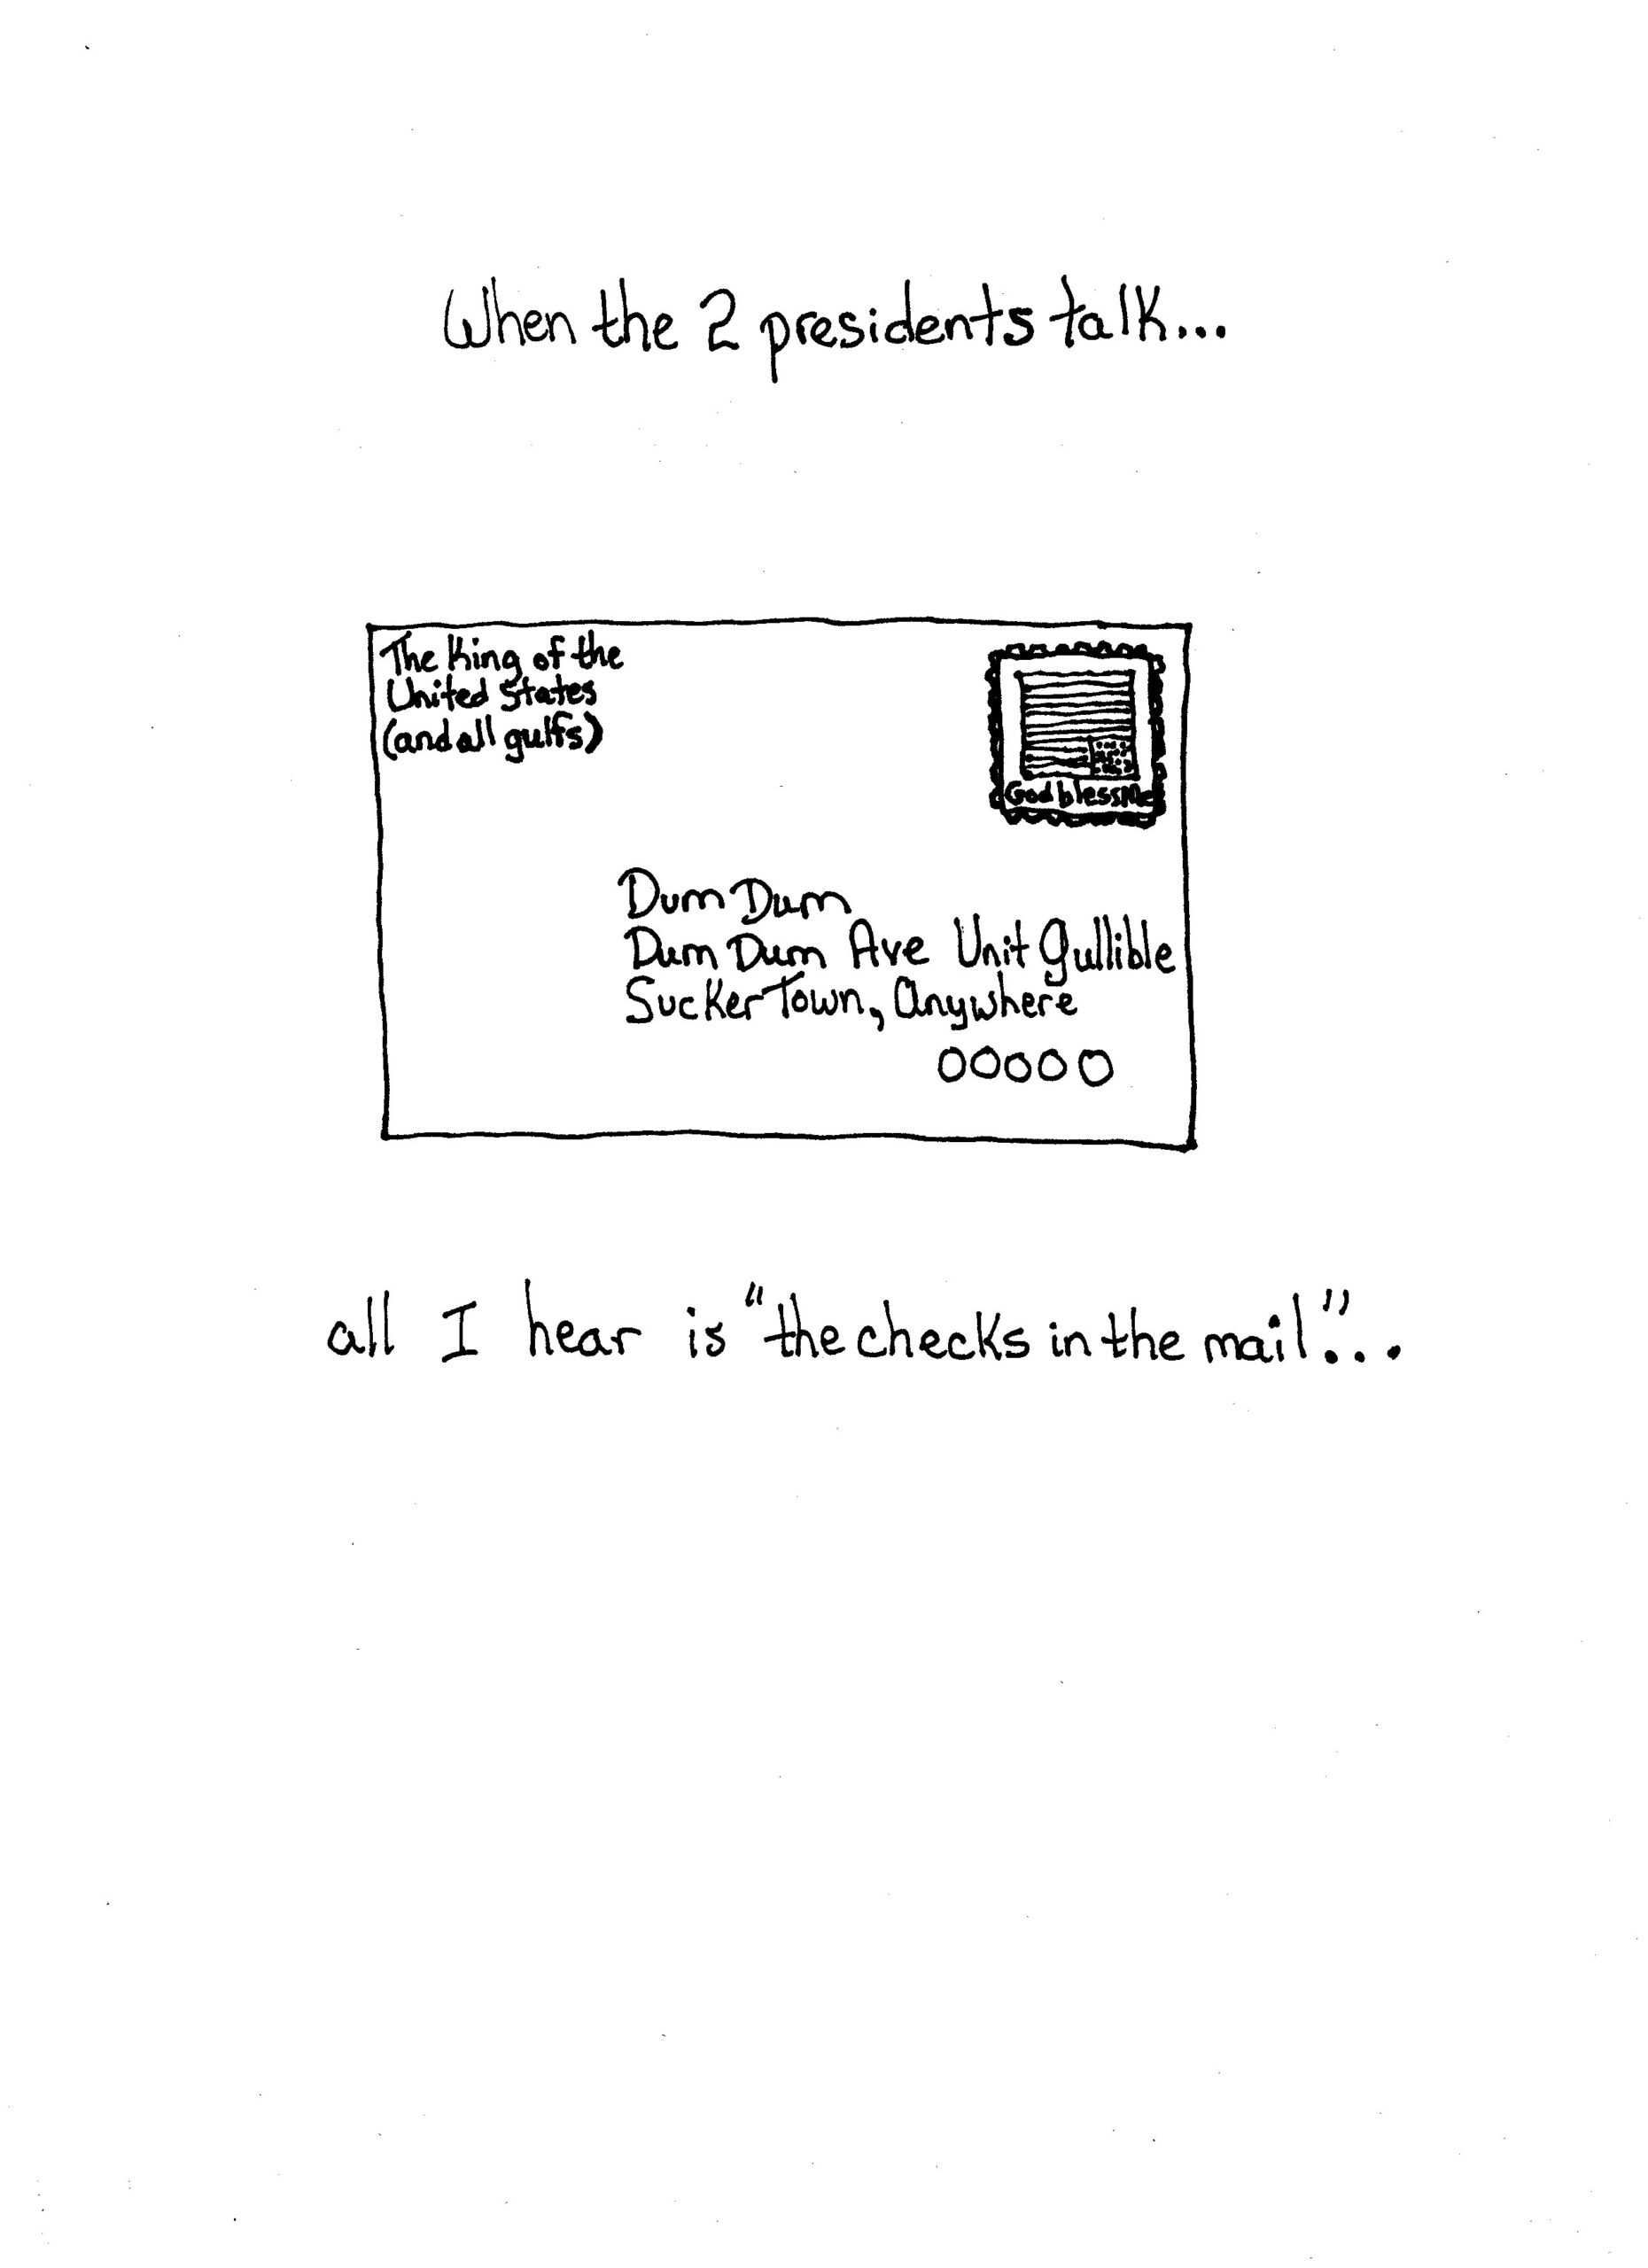 When the 2 presidents talk...
The King of the
United States
(and all gulfs)
God bless Me
Dum Dum
Dum Dum Ave Unit Gullible
Sucker Town, Anywhere
00000
all I hear is "the checks in the mail"...